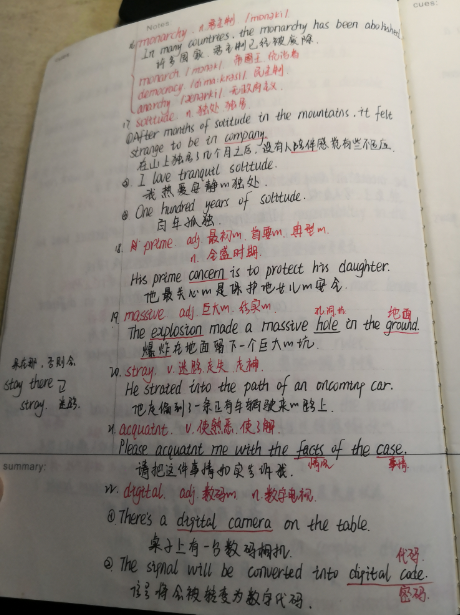 Notes
cues:
monarchy. n. 君主制 /mɒnəki/
In many countries, the monarchy has been abolished
许多国家君主制已经被废除.
monarch /mɒnək/ 帝王
democracy /dɪˈmɒkrəsi/ 民主制
anarchy /ˈænəki/ 无政府主义
17. solitude. n. 独处 独居
①After months of solitude in the mountains, it felt
strange to be in company.
在山上独居了几个月之后, 没有人陪伴感觉有些不适应.
② I love tranquil solitude.
我热爱安静的独处.
③ One hundred years of solitude.
百年孤独.
18. prime. adj. 最初的. 首要的. 典型的.
n. 全盛时期.
His prime concern is to protect his daughter.
他最关心的是保护他女儿的安全.
19. massive adj. 巨大的. 结实的. 孔洞 地面
The explosion made a massive hole in the ground.
爆炸在地面留下一个巨大的坑.
20. stray. v. 迷路 走失 走神
stay there
stray. 迷路.
He strated into the path of an oncoming car.
他走偏到了一条正有车辆驶来的路上.
21. acquaint. v. 使熟悉. 使了解.
Please acquaint me with the facts of the case.
情况 事情
summary:
请把这件事情的实告诉我.
22. digital. adj. 数码的 n. 数字电视.
① There's a digital camera on the table.
桌子上有一台数码相机.
代码.
② The signal will be converted into digital code.
密码.
信号将会被转变为数字代码.